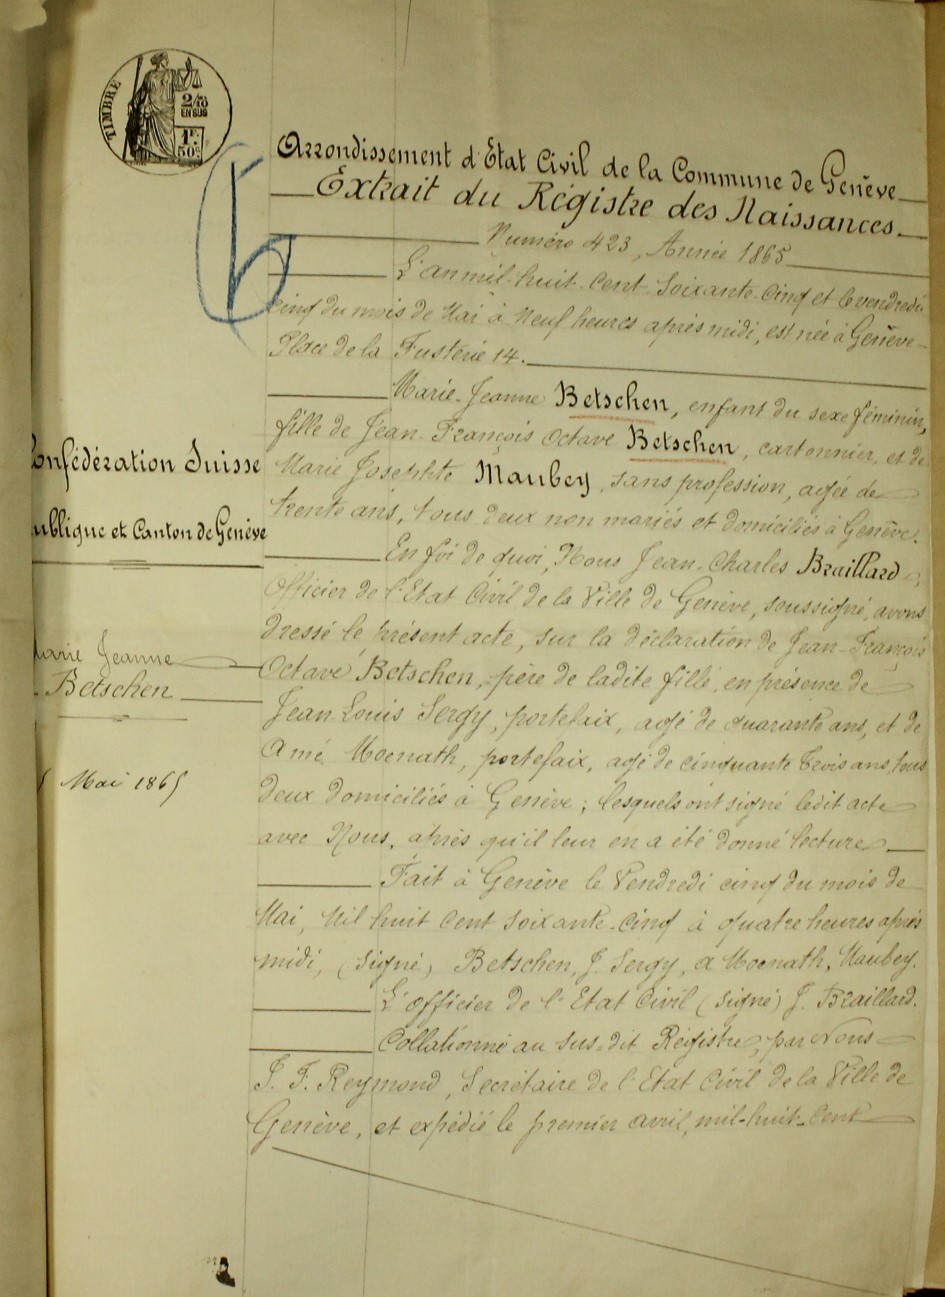 TIMBRE
2/10
EN SUS
1F.
50c
Arrondissement d'Etat Civil de la Commune de Genève
Extrait du Régistre des Naissances.
Numéro 423, Année 1865
L'an mil-huit-cent-soixante-cinq et le vendredi
cinq du mois de Mai à neuf heures après midi, est née à Genève
Place de la Fusterie 14.
Marie-Jeanne Betschen, enfant du sexe féminin,
fille de Jean-François Octave Betschen, cartonnier, et de
Marie Josephte Maubey, sans profession, agée de
trente ans, tous deux non mariés et domiciliés à Genève.
En foi de quoi, Nous Jean-Charles Braillard,
Officier de l'Etat Civil de la Ville de Genève, soussigné, avons
dressé le présent acte, sur la déclaration de Jean-François
Octave Betschen, père de ladite fille, en présence de
Jean Louis Sergy, portefaix, agé de quarante ans, et de
Amé Moenath, portefaix, agé de cinquante trois ans, tous
deux domiciliés à Genève; lesquels ont signé ledit acte
avec Nous, après qu'il leur en a été donné lecture.
Fait à Genève le Vendredi cinq du mois de
Mai, Mil huit cent soixante-cinq à quatre heures après
midi, (signé) Betschen, J. Sergy, a Moenath, Maubey.
L'officier de l'Etat Civil (signé) J. Braillard.
Collationné au sus-dit Régistre, par Nous
J. F. Reymond, Secrétaire de l'Etat Civil de la Ville de
Genève, et expédié le premier avril, mil-huit-cent
onfédération Suisse
ublique et Canton de Genève
Marie Jeanne
Betschen
5 Mai 1865